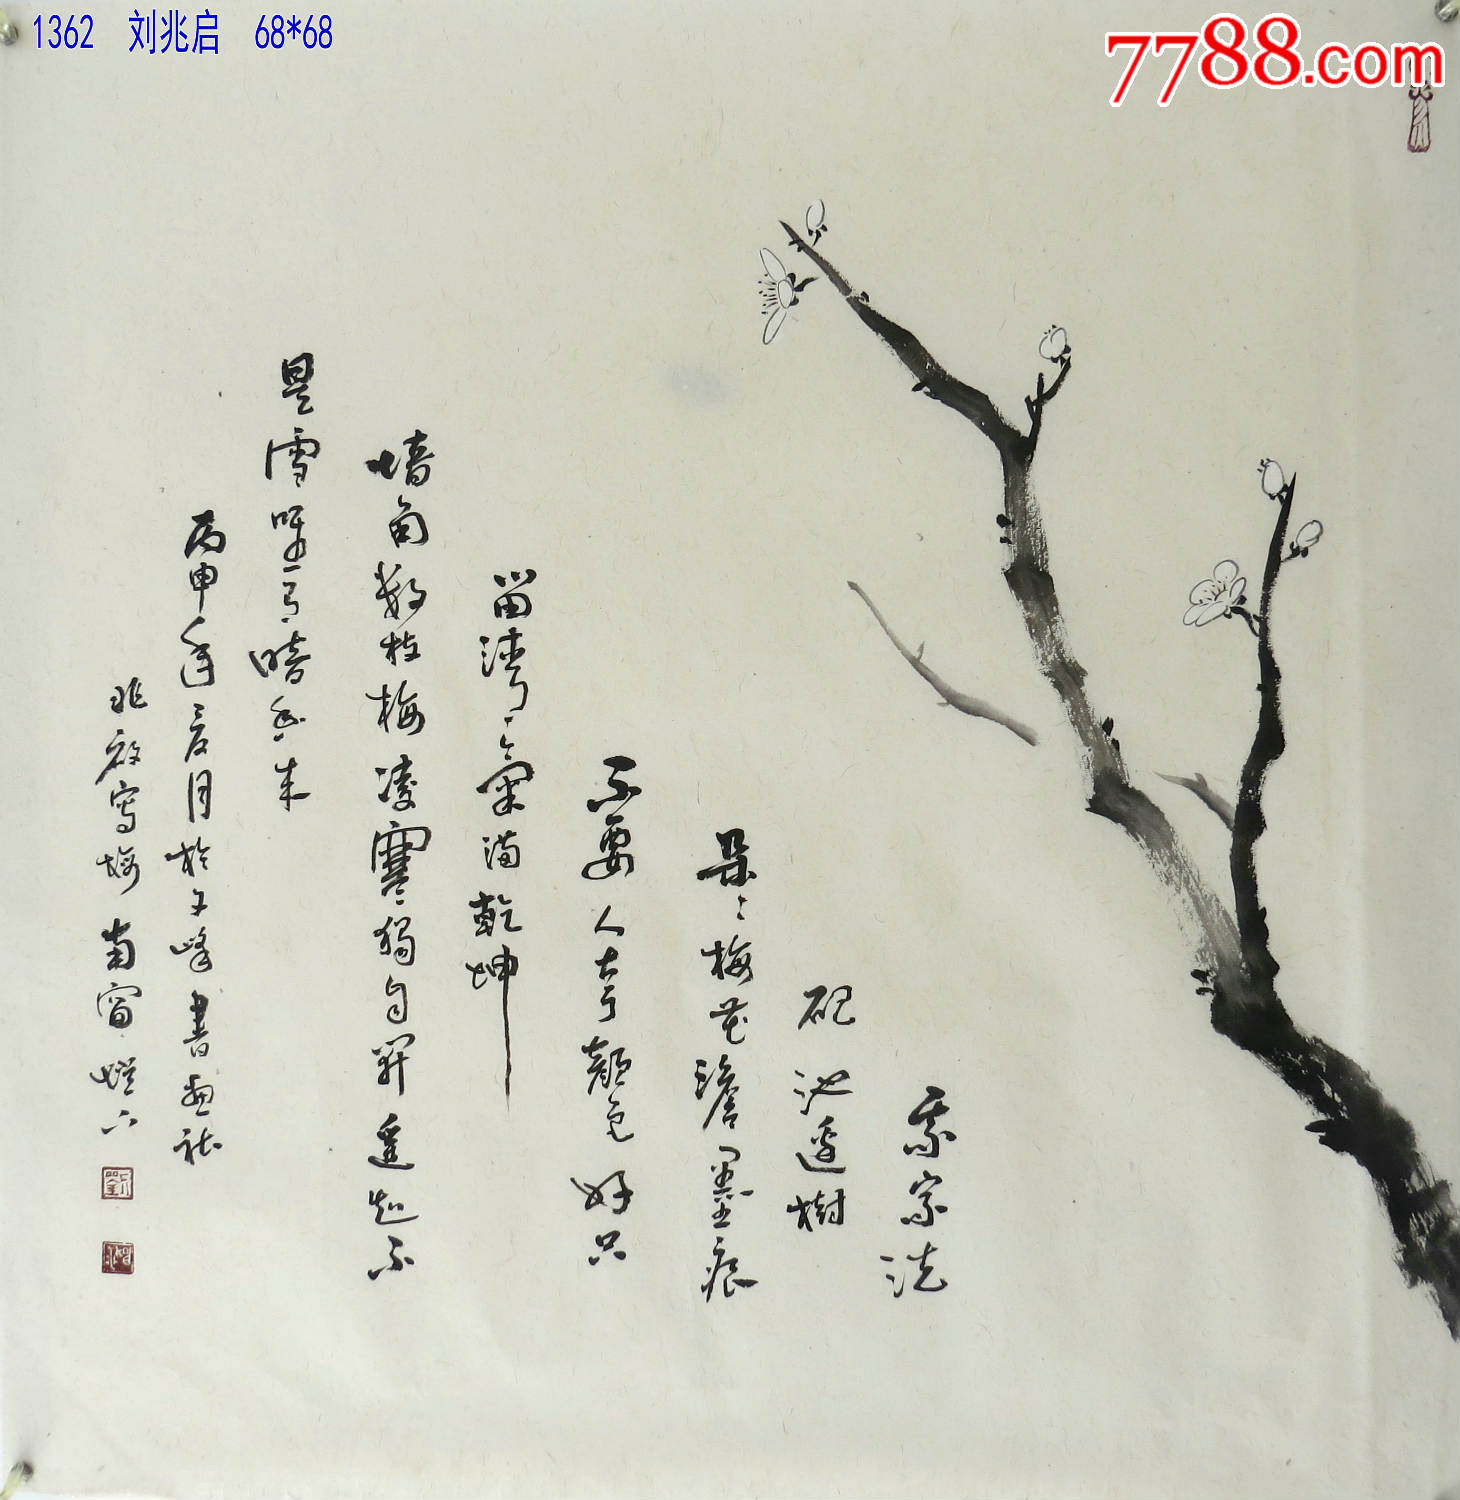 1362 刘兆启 68*68
7788.com
我家洗
砚池邊樹
朵朵梅花澹墨痕
不要人夸颜色好只
留清氣满乾坤
墙角数枝梅凌寒獨自開遥知不
是雪唯有暗香来
丙申年夏月於文峰書画社
兆啟寫梅南窗燈下